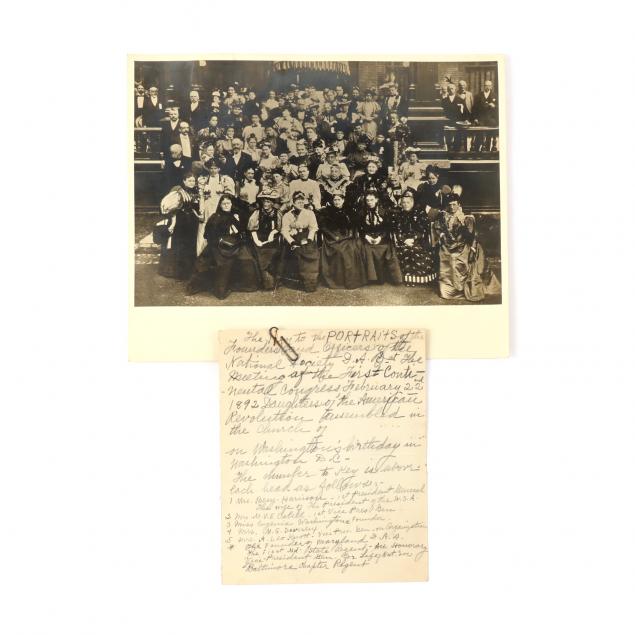 The Key to the PORTRAITS of the
Founders and Officers of the
National Society D.A.R. at The
Meeting of the First Conti-
nental Congress February 22nd
1892 Daughters of the American
Revolution assembled in
the Church of
on Washington's birthday in
Washington D.C.
The number to Key is above
each head as follows:-
1 Mrs. Benj. Harrison - 1st President General
The wife of the President of the U.S.A.
2 Mrs. Cabell, 1st Vice Pres. Gen.
3 Miss Eugenia Washington Founder
4 Mrs.
5 Mrs. A. Leo Knott, Vice Pres. Gen. on Organization
* The Founder, Maryland D.A.R.
The First Md. State Regent - Honorary
Vice President Gen. for Life
Baltimore Chapter Regent